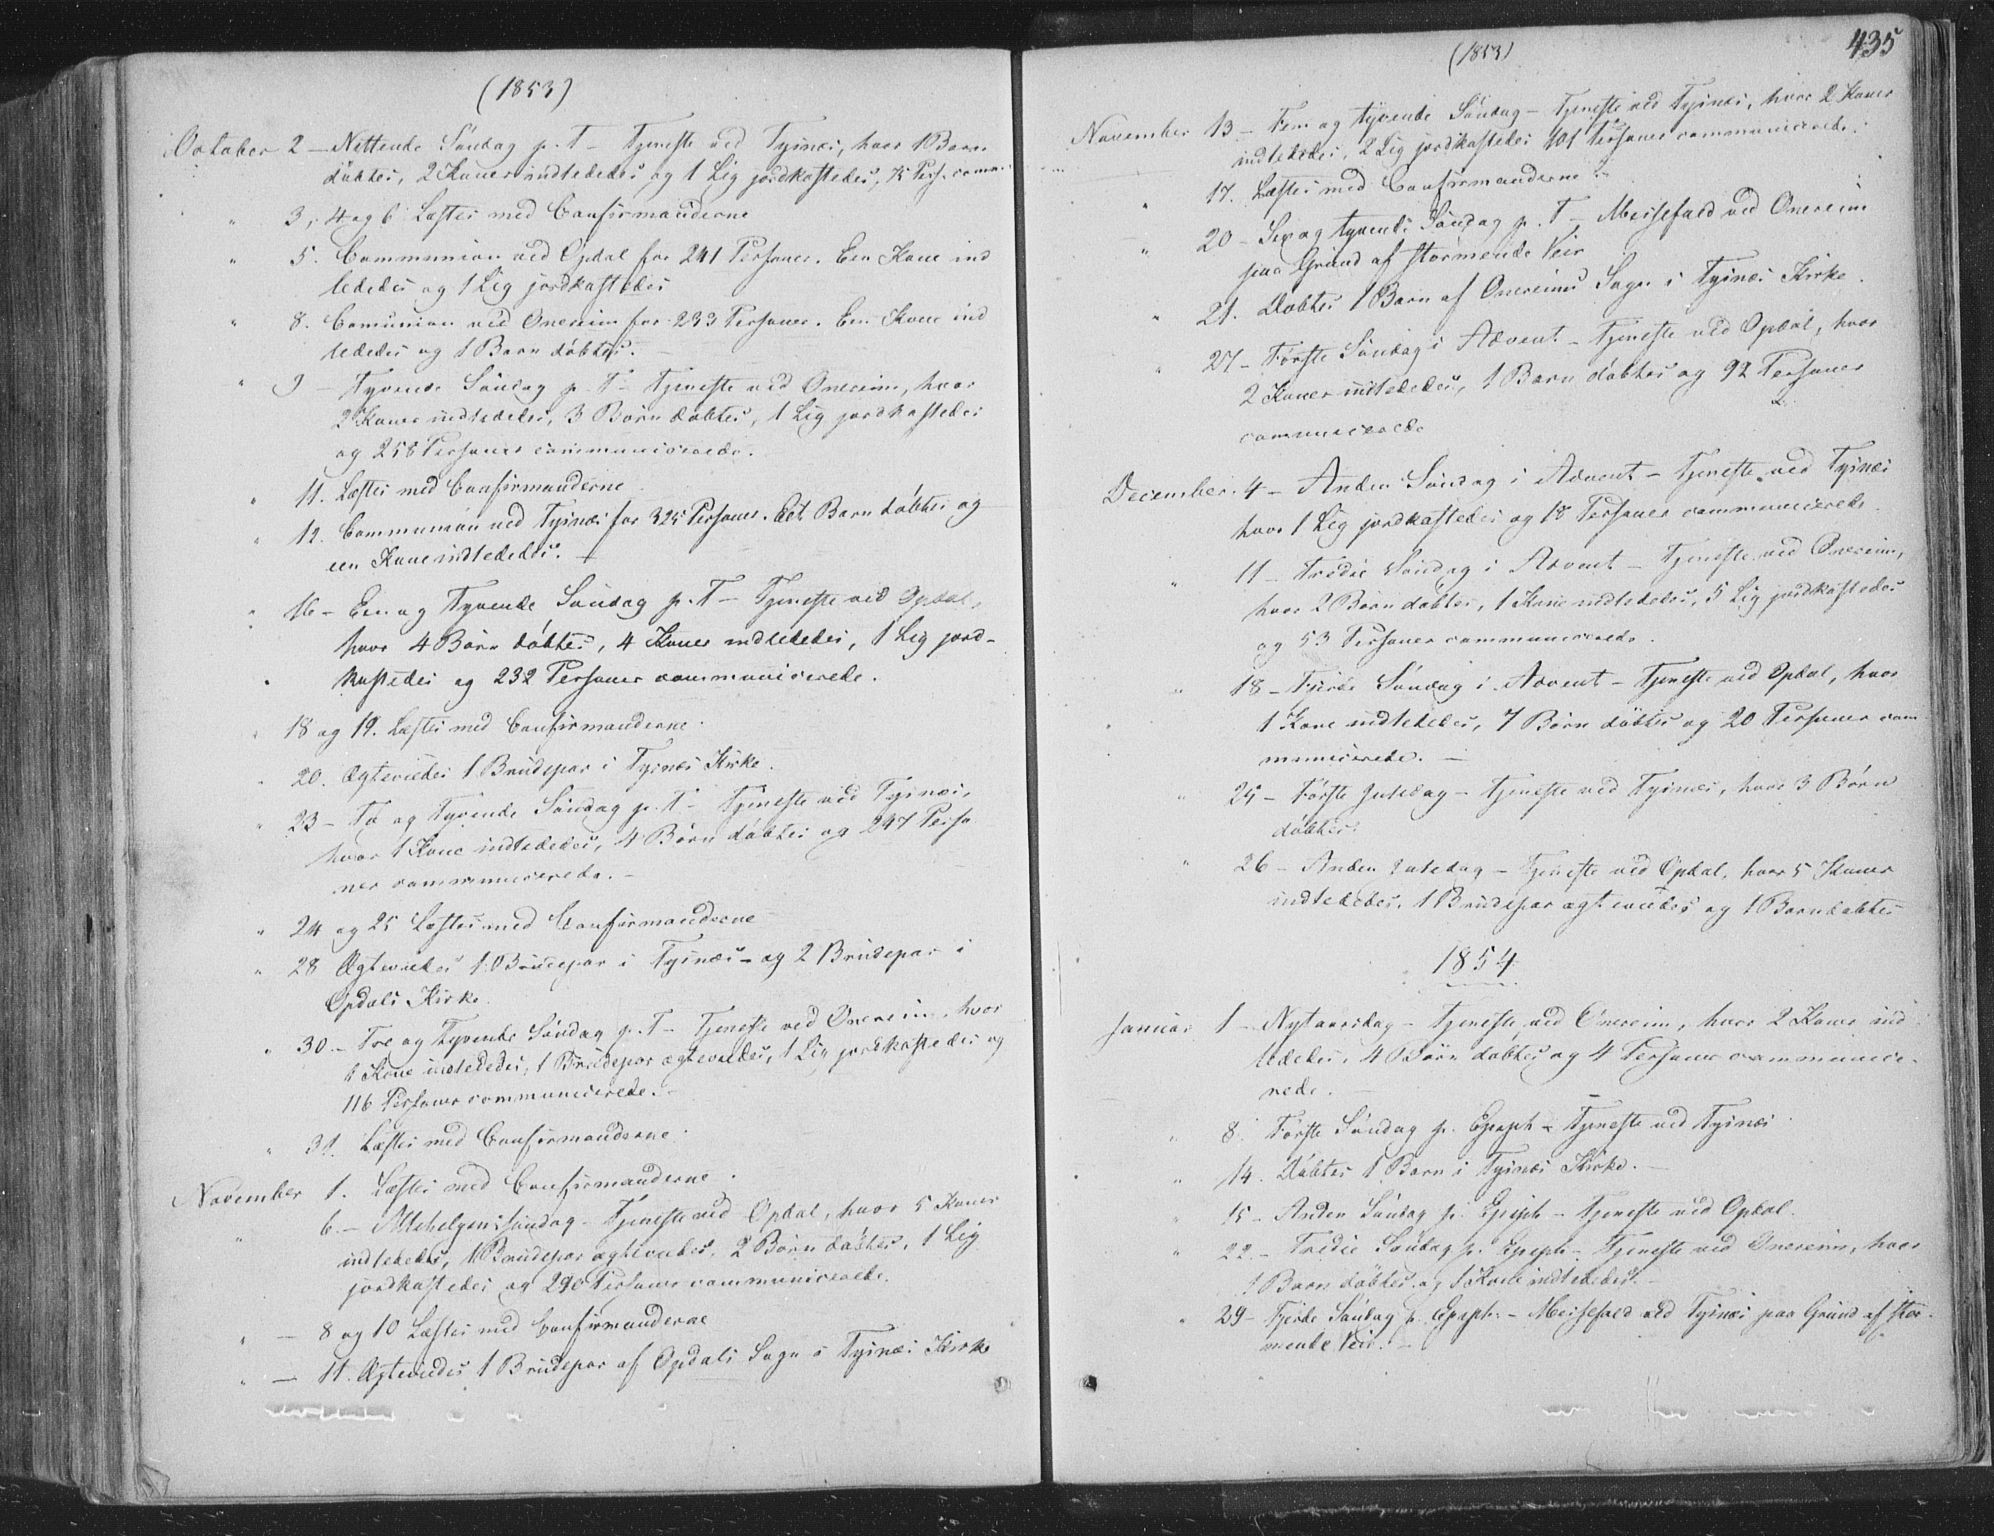 (1853)
October 2 – Nittende Søndag p. T – Tjeneste ved Tysnæs, hvor 1 Barn
døbtes, 2 Koner indlededes og 1 Lig jordkastedes, 75 Pers. comm.
" 3, 4 og 6 Læstes med Confirmanderne
" 5. Communion ved Opdal for 241 Personer. Een Kone ind
lededes og 1 Lig jordkastedes
" 8. Comunion ved Onereim for 233 Personer. Een Kone ind
lededes og 1 Barn døbtes. –
" 9 – Tyvende Søndag p. T – Tjeneste ved Onereim, hvor
2 Koner indlededes, 3 Børn døbtes, 1 Lig jordkastedes
og 258 Personer communicerede.
" 11. Læstes med Confirmanderne
" 12. Communion ved Tysnæs for 325 Personer. Eet Barn døbtes og
een Kone indlededes. –
" 16 – Een og Tyvende Søndag p. T – Tjeneste ved Opdal,
hvor 4 Børn døbtes, 4 Koner indlededes, 1 Lig jord-
kastedes og 232 Personer communicerede.
" 18 og 19. Læstes med Confirmanderne.
" 20. Ægteviedes 1 Brudepar i Tysnæs Kirke.
" 23 – To og Tyvende Søndag p. T – Tjeneste ved Tysnæs,
hvor 1 Kone indlededes, 4 Børn døbtes og 247 Perso
ner communicerede. –
" 24 og 25 Læstes med Confirmanderne
" 28 Ægteviedes 1 Brudepar i Tysnæs – og 2 Brudepar i
Opdals Kirke.
" 30 – Tre og Tyvende Søndag p. T – Tjeneste ved Onereim, hvor
1 Kone indlededes, 1 Brudepar ægteviedes, 1 Lig jordkastedes og
116 Personer communicerede. –
" 31. Læstes med Confirmanderne.
November 1. Læstes med Confirmanderne.
" 6 – Allehelgenssøndag – Tjeneste ved Opdal, hvor 5 Koner
indlededes, 1 Brudepar ægteviedes, 2 Børn døbtes, 1 Lig
jordkastedes og 290 Personer communicerede.
" – 8 og 10 Læstes med Confirmanderne
" – 11. Ægteviedes 1 Brudepar af Opdals Sogn i Tysnæs Kirke
(1853)
435
November 13 – Fem og tyvende Søndag – Tjeneste ved Tysnæs, hvor 2 Koner
indlededes, 2 Lig jordkastedes 101 Personer communicerede.
" 17. Læstes med Confirmanderne
" 20 – Sex og tyvende Søndag p. T – Messefald ved Onereim
paa Grund af stormende Veir
" 21. Døbtes 1 Barn af Onereims Sogn i Tysnæs Kirke.
" 27 – Første Søndag i Advent – Tjeneste ved Opdal, hvor
2 Koner indlededes, 1 Barn døbtes og 92 Personer
communicerede
December 4 – Anden Søndag i Advent – Tjeneste ved Tysnæs
hvor 1 Lig jordkastedes og 18 Personer communicerede.
" 11 – Tredie Søndag i Advent – Tjeneste ved Onereim,
hvor 2 Børn døbtes, 1 Kone indlededes, 5 Lig jordkastedes
og 53 Personer communicerede.
" 18 – Fjerde Søndag i Advent – Tjeneste ved Opdal, hvor
1 Kone indlededes, 7 Børn døbtes og 20 Personer com
municerede. –
" 25 – Første Juledag – Tjeneste ved Tysnæs, hvor 3 Børn
døbtes.
" 26 – Anden Juledag – Tjeneste ved Opdal, hvor 5 Koner
indlededes, 1 Brudepar ægteviedes og 1 Barn døbtes
1854
Januar 1 – Nytaarsdag – Tjeneste ved Onereim, hvor 2 Koner ind
lededes, 4 Børn døbtes og 4 Personer communice-
rede.
" 8. Første Søndag p. Epiph – Tjeneste ved Tysnæs
" 14. Døbtes 1 Barn i Tysnæs Kirke. –
" 15 – Anden Søndag p. Epiph – Tjeneste ved Opdal.
" 22 – Tredie Søndag p. Epiph – Tjeneste ved Onereim, hvor
1 Barn døbtes og 1 Kone indlededes. –
" 29 – Fjerde Søndag p. Epiph. – Messefald ved Tysnæs paa Grund af stor-
mende Veir. –